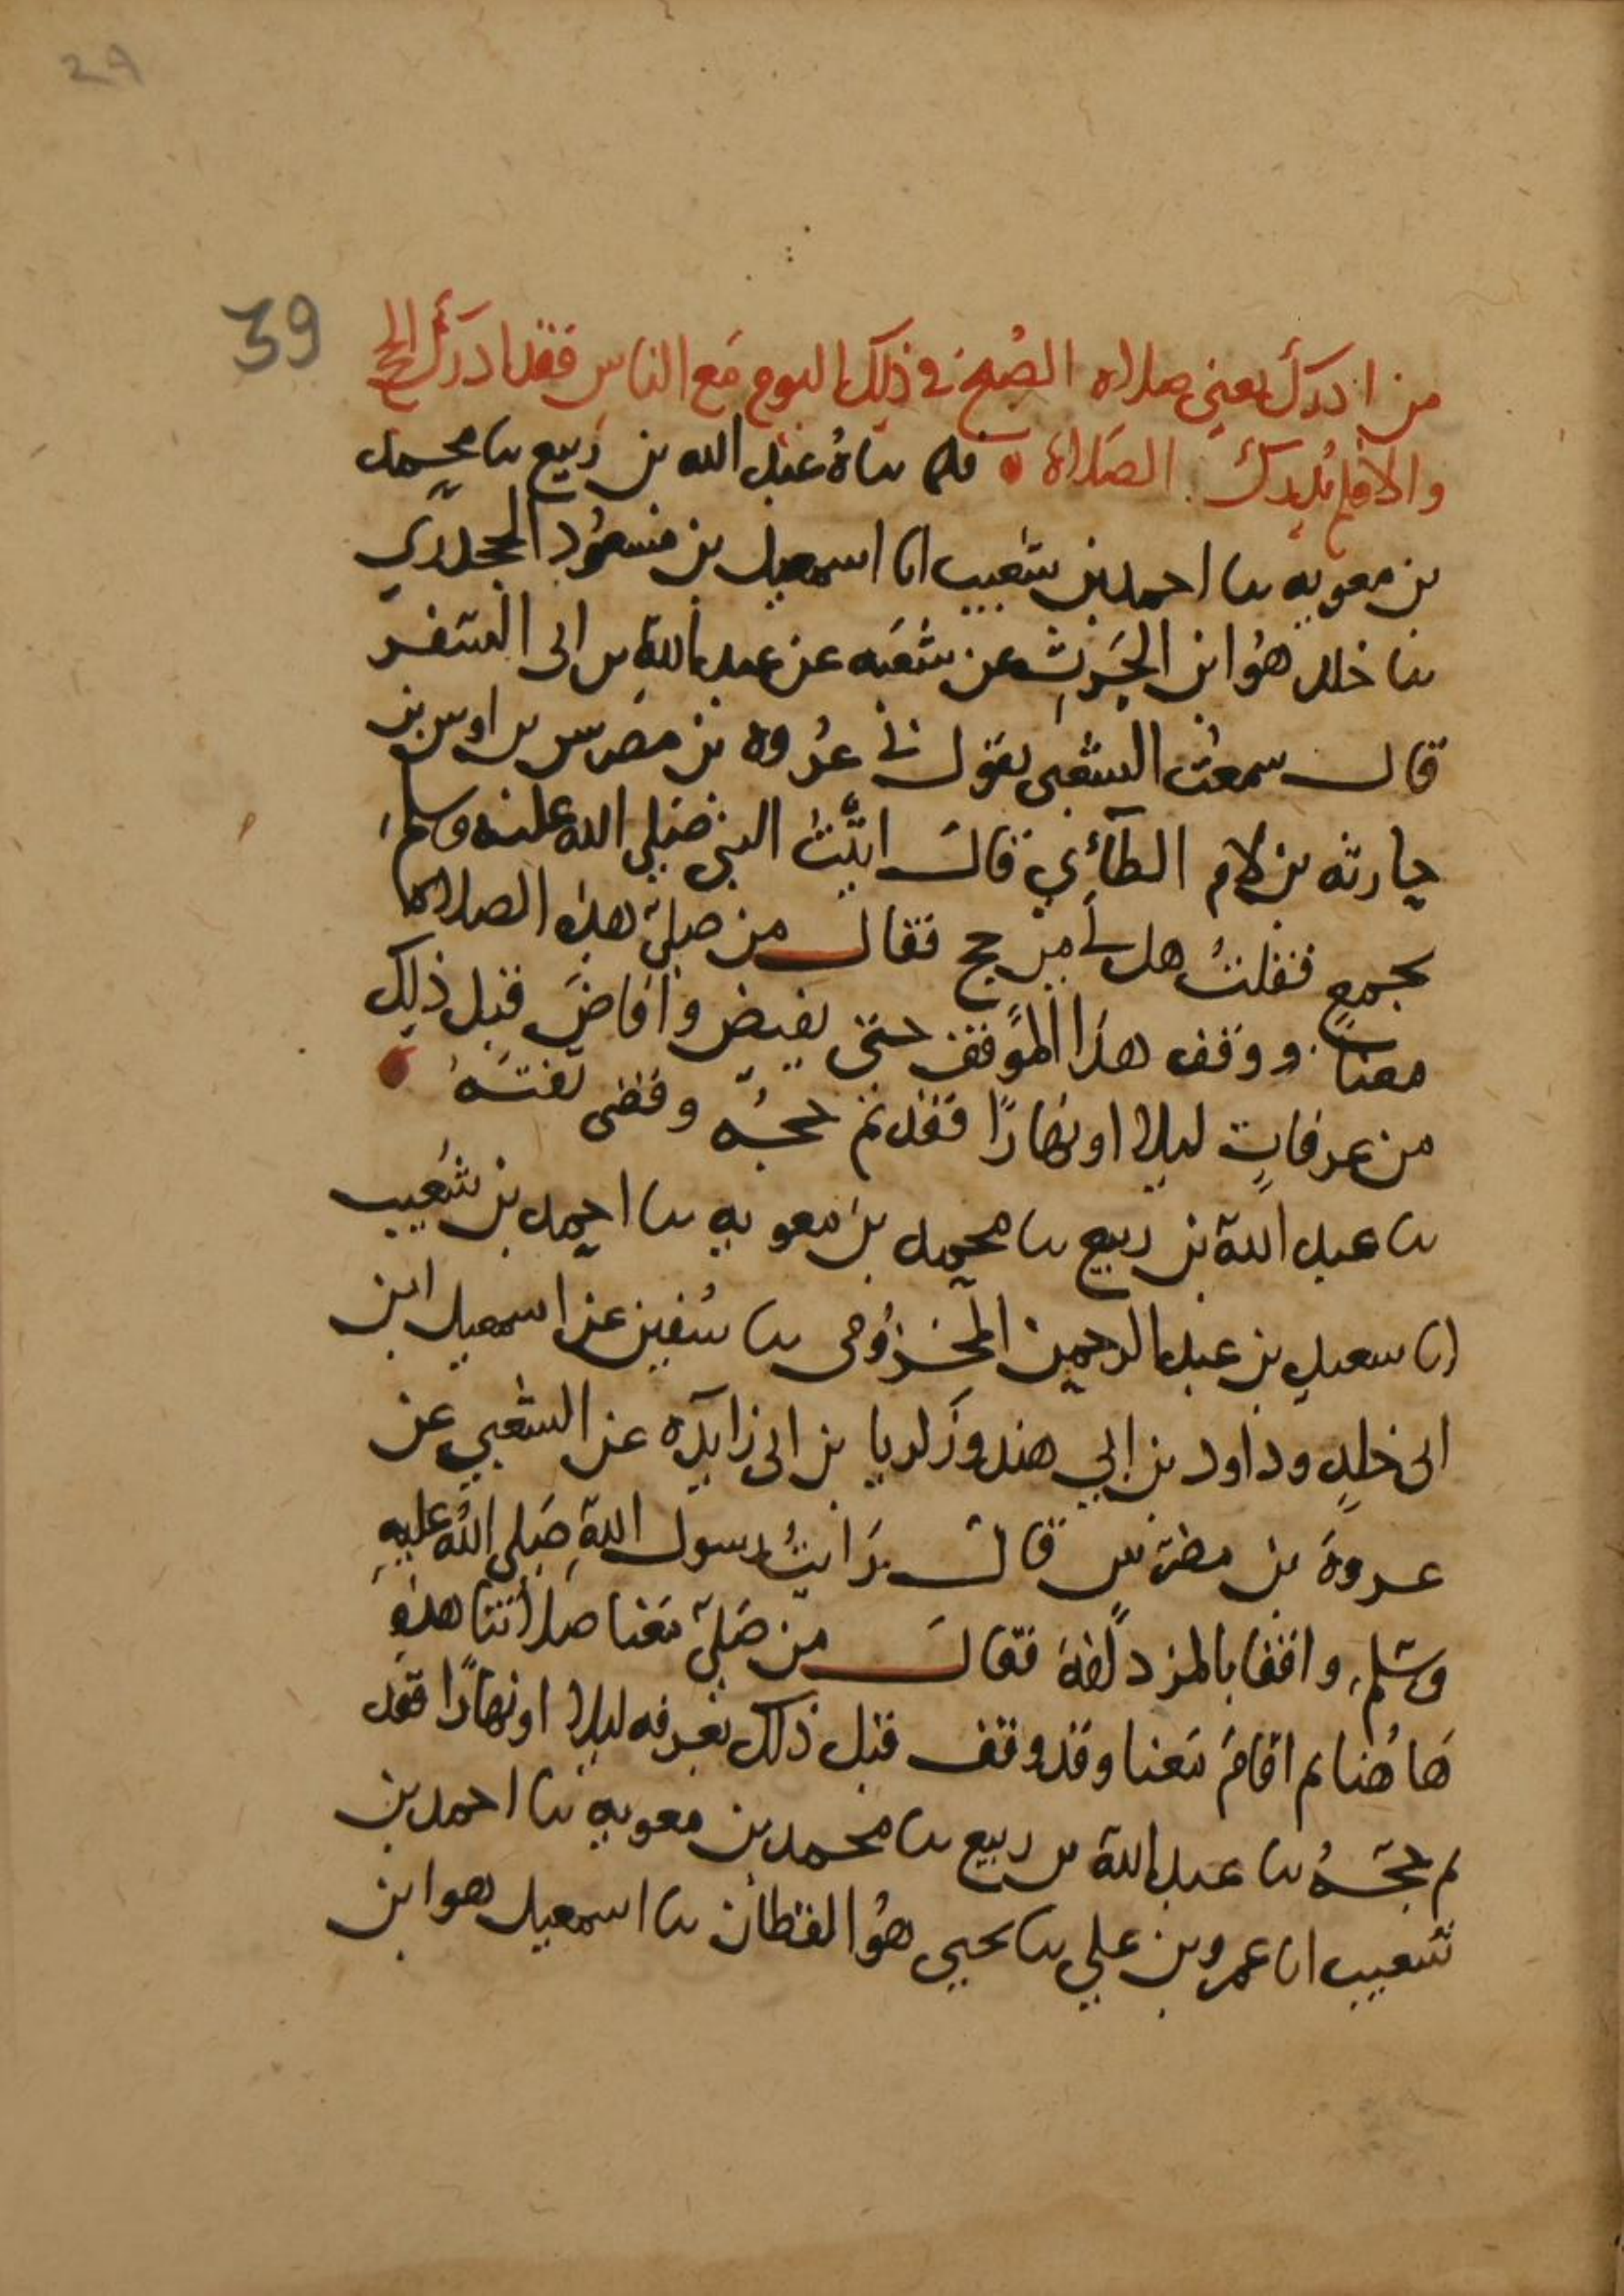 29
39
من ادرك يعني صلاه الصُبح في ذلِك اليوم مَع الناس فقد ادرَك الحج
والا فلم يُدرك الصَلاة • فلما ساهُ عبد الله بن رَبيع سا محمد
بن معويه سا احمد بن شعيب انا اسمعيل بن مسعُود الجحدري
سا خلد هُو ابن الحَرِث عن شعبَه عن عبد الله بن ابى السفر
قال سمعتُ الشعبى يقول ني عُروه بن مضرس بن اوس بن
حارثه بن لام الطآئي قال اتَيتُ النبي صَلى الله عليه وسلم
بجمعٍ فقلتُ هل لي من حج فقال من صلى هذه الصلاة
معنا ووقف هذا الموقف حتى يفيض وافاضَ قبل ذلِك
من عرفاتٍ ليلا او نهارًا فقد تم حجُه وقضى تفثَهُ •
سا عبد الله بن ربيع سا محمد بن معويه سا احمد بن شُعيب
انا سعيد بن عبد الرحمن المخزُومى سا سُفين عن اسمعيل ابن
ابى خلدٍ وداود بن ابي هند وزكريا بن ابى زايدَه عن الشعبي عن
عروةَ بن مضرّس قال رَايتُ رسول اللهِ صَلى اللهُ عليهِ
وسَلم واقفا بالمزدلفة فقالَ من صَلى مَعنا صَلاتنا هذهِ
هَا هُنا ثم اقامَ مَعنا وقد وقف قبل ذلك بعَرفه ليلا او نهارًا فقد
تم حجّهُ سا عبد الله بن ربيع سا محمد بن معويه سا احمد بن
شعيب انا عمرو بن علي سا يحيى هُو القطان سا اسمعيل هو ابن